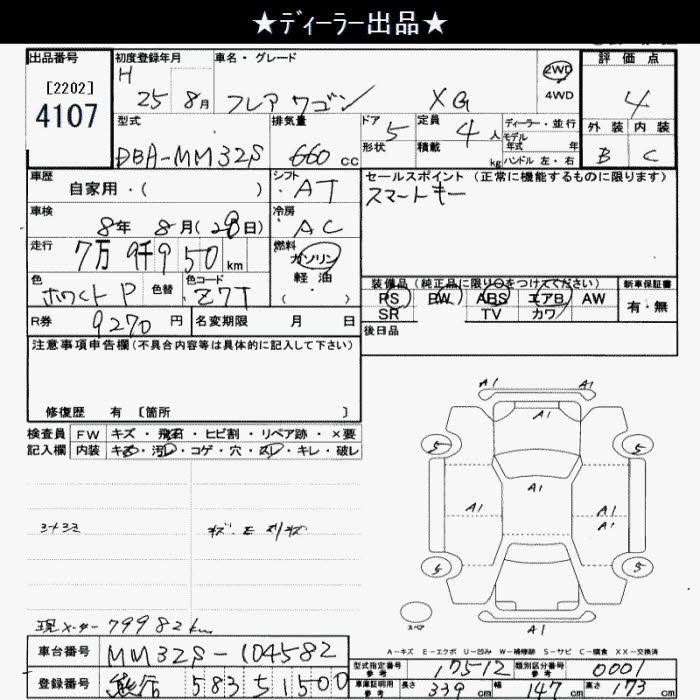 ★ディーラー出品★
出品番号
[2202]
4107
初度登録年月
H 25 8月
車名・グレード
フレア ワゴン XG
2WD
4WD
評価点
4
外装 内装
B C
型式
DBA-MM32S
排気量
660 cc
ドア 5
形状
定員 4 人
積載 kg
ディーラー・並行
モデル
年式 年
ハンドル 左・右
車歴
自家用・( )
シフト
・AT
セールスポイント (正常に機能するものに限ります)
スマートキー
車検
8年 8月(28日)
冷房
AC
走行
7万 9千9 50 km
燃料
ガソリン
軽油
( )
色
ホワイトP
色替
色コード
Z7T
装備品(純正品に限り○をつけてください)
PS PW ABS エアB AW
SR TV カワ
新車保証書
有・無
R券
9270 円
名変期限 月 日
後日品
注意事項申告欄(不具合内容等は具体的に記入して下さい)
修復歴 有 [箇所 ]
検査員
記入欄
FW キズ・飛石・ヒビ割・リペア跡・×要
内装 キズ・汚レ・コゲ・穴・スレ・キレ・破レ
A1 A1
A1
5 5
A1
A1 A1
A1
5 5
スペア
A1
現メーター 79982km
A-キズ E-エクボ U-凹み W-補修跡 S-サビ C-腐食 XX-交換済
車台番号
MM32S-104582
登録番号
熊谷 583 51500
型式指定番号
参考
17512
類別区分番号
参考
0001
車庫証明用
参考
長さ 339 cm 幅 147 cm 高さ 173 cm